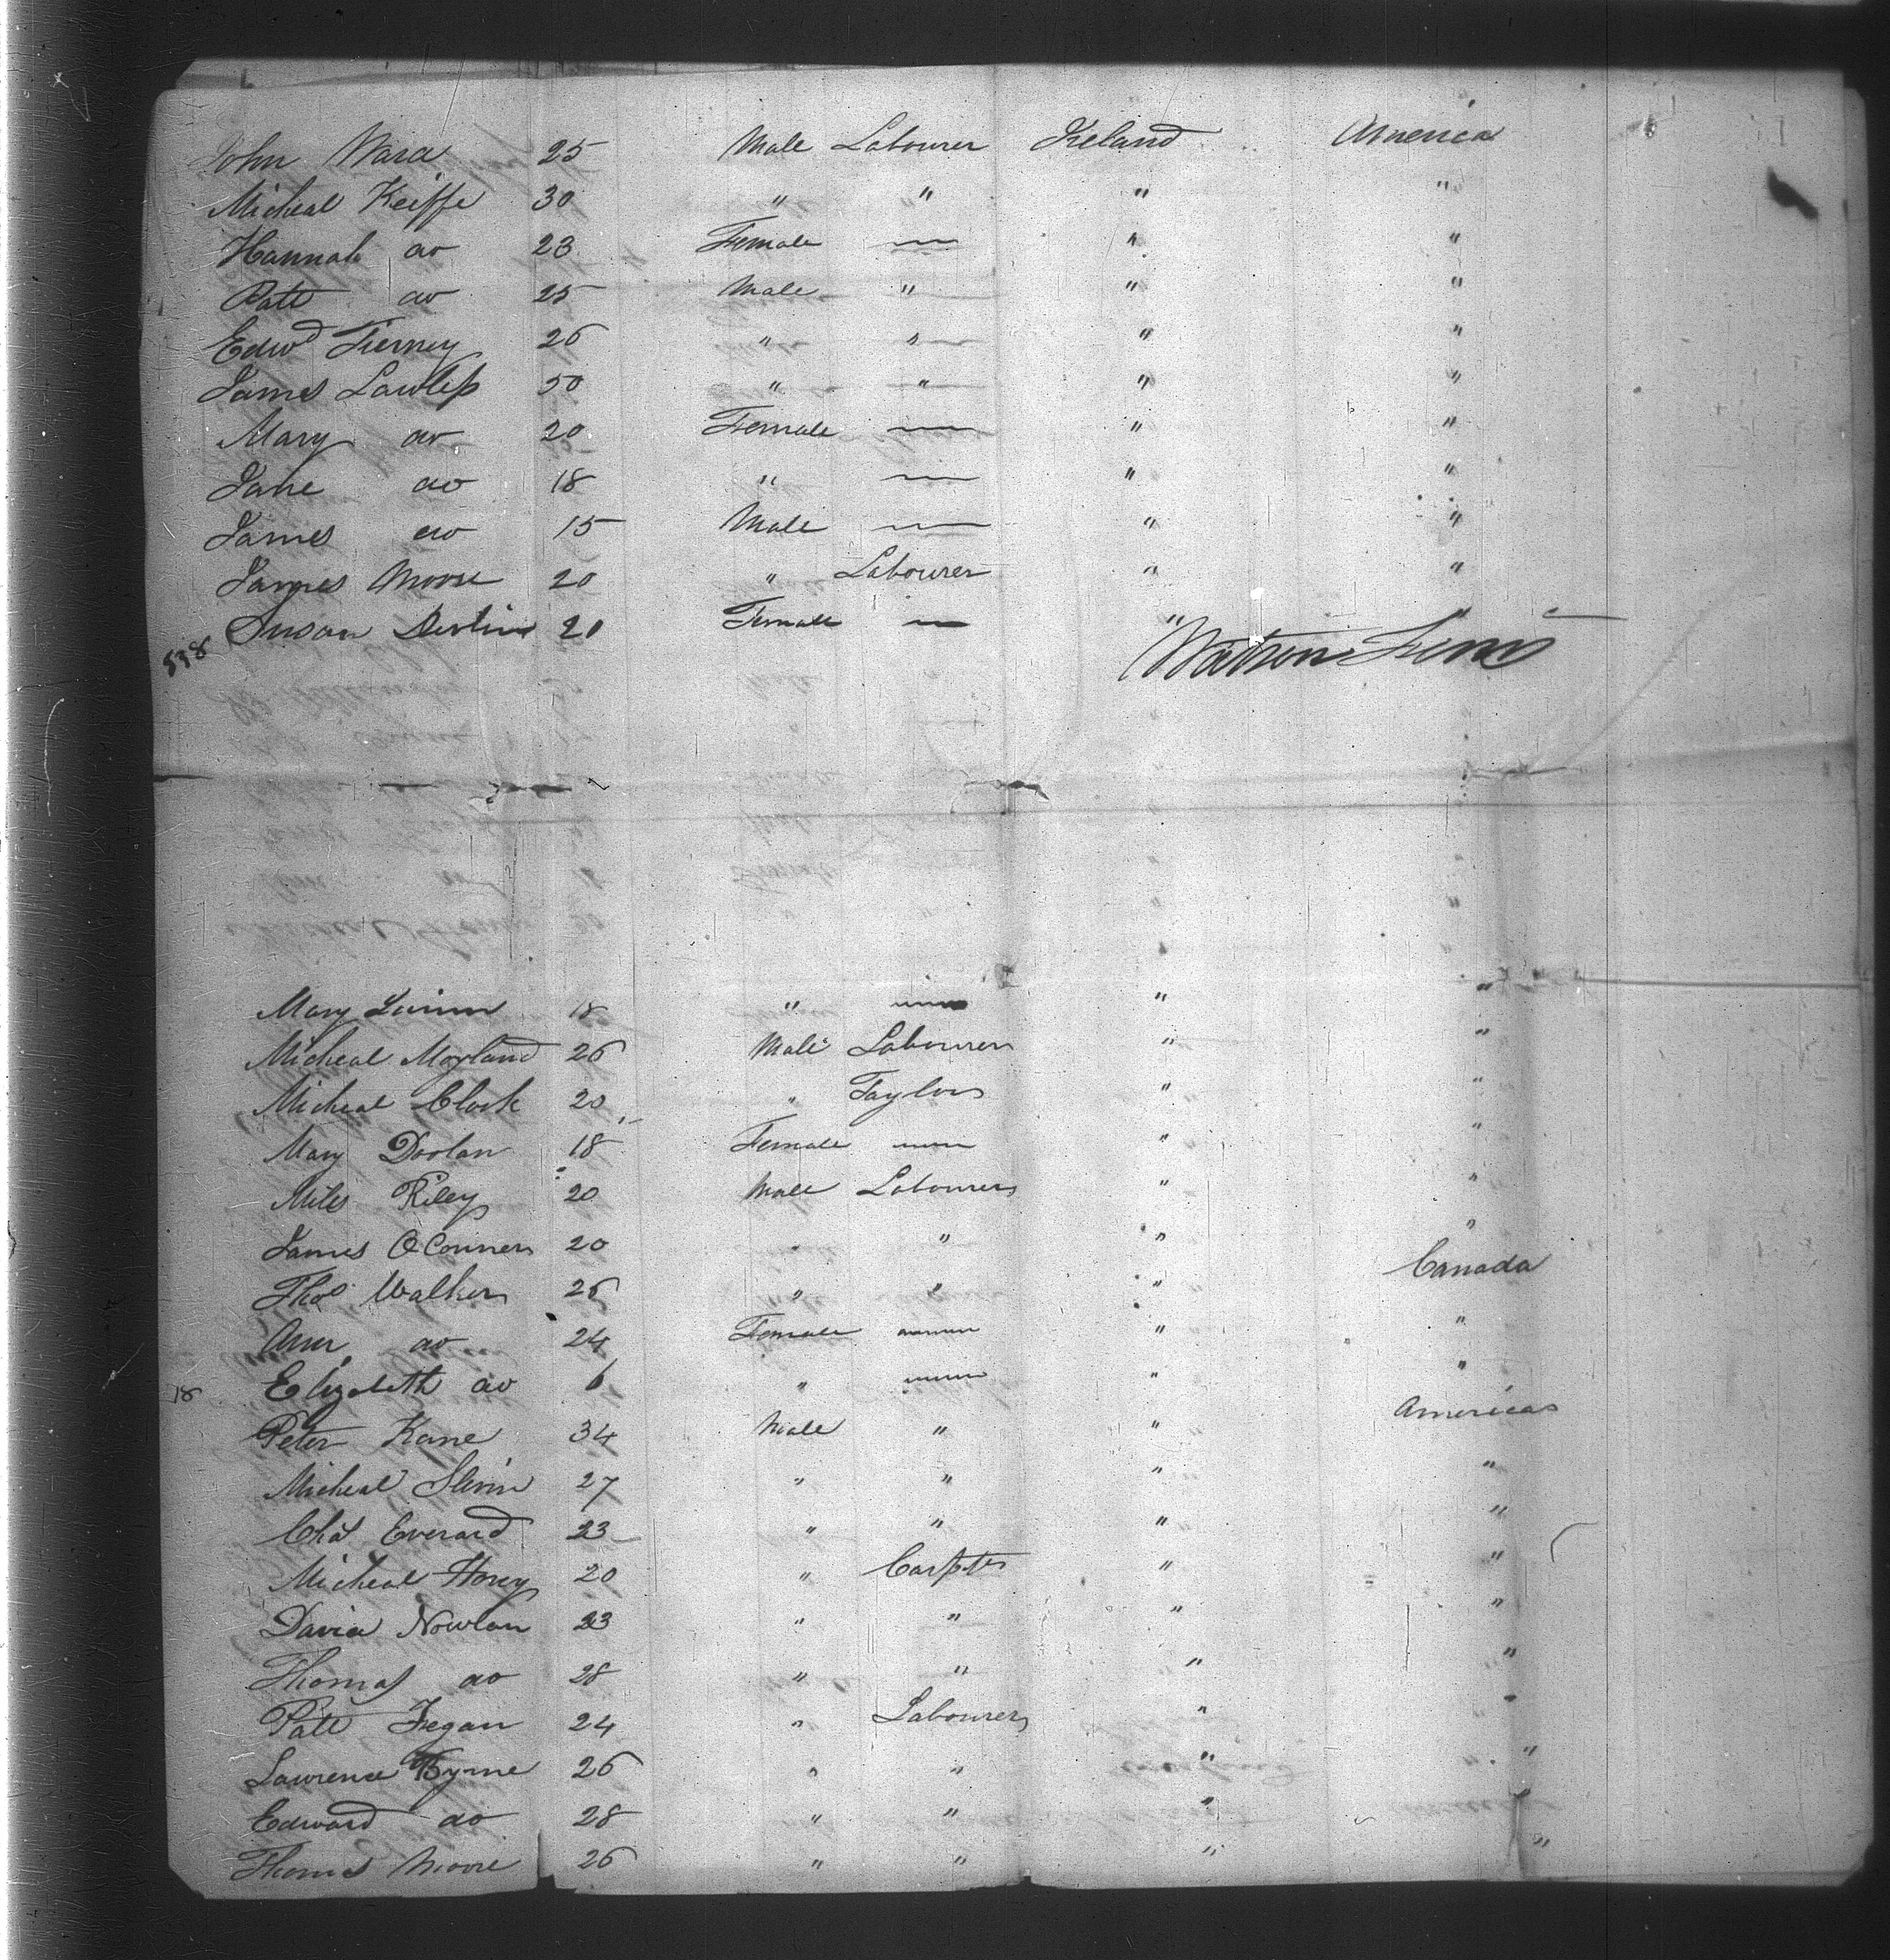 John Ward 25 Male Labourer Ireland America
Micheal Keiffe 30 " " " "
Hannah do 23 Female — " "
Patt do 25 Male " " "
Edwd Tierney 26 " " " "
James Lawless 50 " " " "
Mary do 20 Female — " "
Jane do 18 " — " "
James do 15 Male — " "
James Moore 20 " Labourer " "
538 Susan 20 Female — " "
Mary 18 " — " "
Micheal Moyland 26 Male Labourer " "
Micheal Clark 20 " Taylor " "
Mary Doolan 18 Female — " "
Miles Riley 20 Male Labourer " "
James O'Conner 20 " " " "
Thos Walker 26 " " " Canada
Ann do 24 Female — " "
18 Elizabeth do 6 " — " "
Peter Kane 34 Male " " America
Micheal Slevin 27 " " " "
Chas Everard 23 " " " "
Micheal 20 " Carptr " "
David Nowlan 23 " " " "
Thomas do 28 " " " "
Patt Fegan 24 " Labourer " "
Lawrence Byrne 26 " " " "
Edward do 28 " " " "
Thomas Moore 26 " " " "